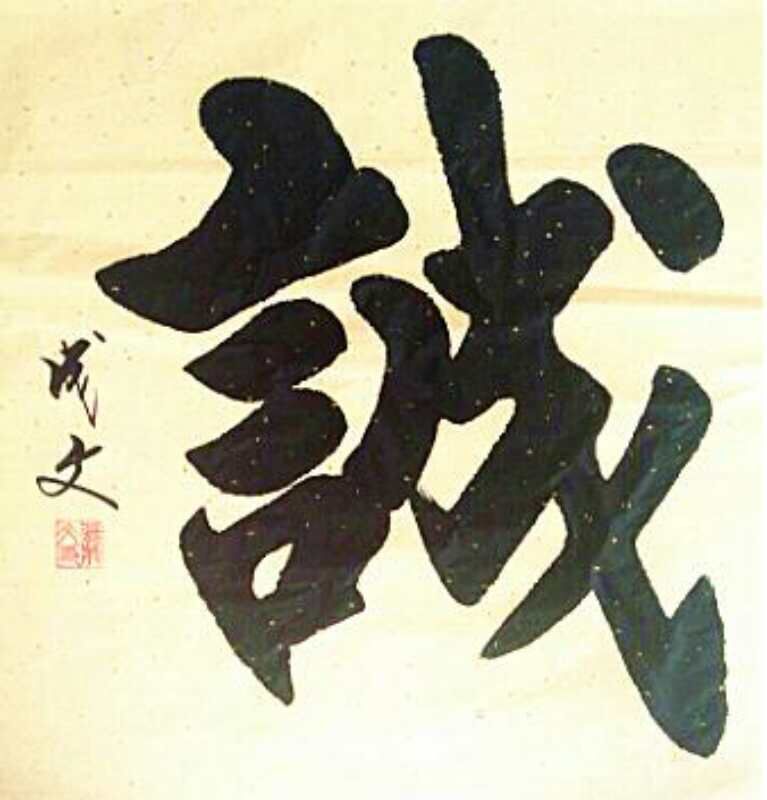 誠
成文